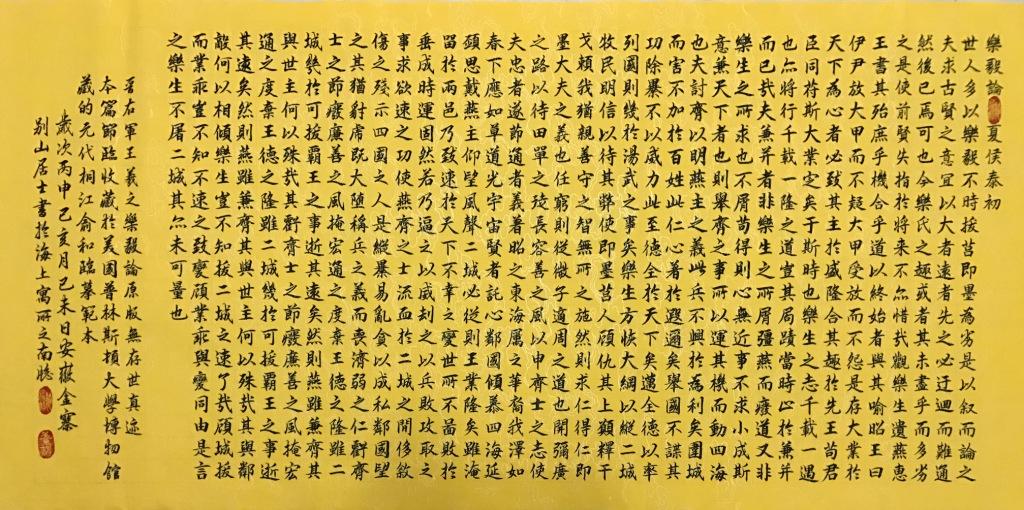 樂毅論 夏侯泰初
世人多以樂毅不時拔莒即墨為劣是以叙而論之
夫求古賢之意宜以大者遠者先之必迂迴而難通
然後已焉可也今樂氏之趣或者其未盡乎而多劣
之是使前賢失指於將來不亦惜哉觀樂生遺燕惠
王書其殆庶乎機合乎道以終始者與其喻昭王曰
伊尹放大甲而不疑大甲受放而不怨是存大業於
天下為心者必致其主於盛隆合其趣於先王苟君
臣同符斯大業定矣于斯時也樂生之志千載一遇
也亦將行千載一隆之道豈其局蹟當時止於兼并
而已哉夫兼并者非樂生之所屑彊燕而廢道又非
樂生之所求也不屑苟得則心無近事不求小成斯
意兼天下者也則舉齊之事所以運其機而動四海
也夫討齊以明燕主之義此兵不興於為利矣圍城
而害不加於百姓此仁心著於遐邇矣舉國不謀其
功除暴不以威力此至德全於天下矣邁全德以率
列國則幾於湯武之事矣樂生方恢大綱以縱二城
牧民明信以待其弊使即墨莒人顧仇其上願釋干
戈賴我猶親善守之智無所之施然則求仁得仁即
墨大夫之義也任窮則從微子適周之道也開彌廣
之路以待田單之徒長容善之風以申齊士之志使
夫忠者遂節通者義著昭之東海屬之華裔我澤如
春下應如草道光宇宙賢者託心鄰國傾慕四海延
頸思戴燕主仰望風聲二城必從則王業隆矣雖淹
留於兩邑乃致速於天下不幸之變世所不啚敗於
垂成時運固然若乃逼之以威劫之以兵敗攻取之
事求欲速之功使燕齊之士流血於二城之間侈敘
傷之殘示四國之人是縱暴易亂貪以成私鄰國望
之其猶豺虎既大墮稱兵之義而喪濟弱之仁虧齊
士之節廢廉善之風掩宏通之度棄王德之隆雖二
城幾於可拔霸王之事逝其遠矣然則燕雖兼齊其
與世主何以殊哉其虧齊士之節廢廉善之風掩宏
通之度棄王德之隆雖二城幾於可拔霸王之事逝
其遠矣然則燕雖兼齊其與世主何以殊哉其與鄰
敵何以相傾樂生豈不知拔二城之速了哉顧城拔
而業乖豈不知不速之致變顧業乖與變同由是言
之樂生不屠二城其亦未可量也
晉右軍王羲之樂毅論原版無存世真迹
本篇節臨收藏於美國普林斯頓大學博物館
藏的元代桐江俞和臨摹範本
歲次丙申己亥月己未日安徽金寨
别山居士書於海上寓所之南牕